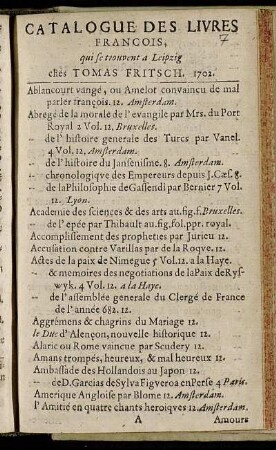 CATALOGUE DES LIVRES
FRANCOIS,
7
qui se trouvent a Leipzig
chés TOMAS FRITSCH. 1702.
Ablancourt vangé, ou Amelot convaincu de mal
parler françois. 12. Amsterdam.
Abregé de la morale de l'evangile par Mrs. du Port
Royal 2 Vol. 12. Bruxelles.
-- de l'histoire generale des Turcs par Vanel.
4 Vol. 12. Amsterdam.
-- de l'histoire du Jansenisne. 8. Amsterdam.
-- chronologiqve des Empereurs depuis J. Cæs. 8.
-- de la Philosophie de Gassendi par Bernier 7 Vol.
12. Lyon.
Academie des sciences & des arts au. fig. f. Bruxelles.
-- de l'epée par Thibault au. fig. fol. ppr. royal.
Accomplissement des propheties par Jurieu 12.
Accusation contre Varillas par de la Roqve. 12.
Actes de la paix de Nimegue 5 Vol. 12. a la Haye.
-- & memoires des negotiations de la Paix de Rys-
wyk. 4 Vol. 12. a la Haye.
-- de l'assemblée generale du Clergé de France
de l'année 682. 12.
Aggrémens & chagrins du Mariage 12.
le Duc d'Alençon, nouvelle historique 12.
Alaric ou Rome vaincue par Scudery 12.
Amans trompés, heureux, & mal heureux 12.
Ambassade des Hollandois au Japon 12.
-- de D. Garcias de Sylva Figveroa en Perse 4 Paris.
Amerique Angloise par Blome 12. Amsterdam.
l'Amitié en quatre chants heroiqves 12. Amsterdam.
A
Amours